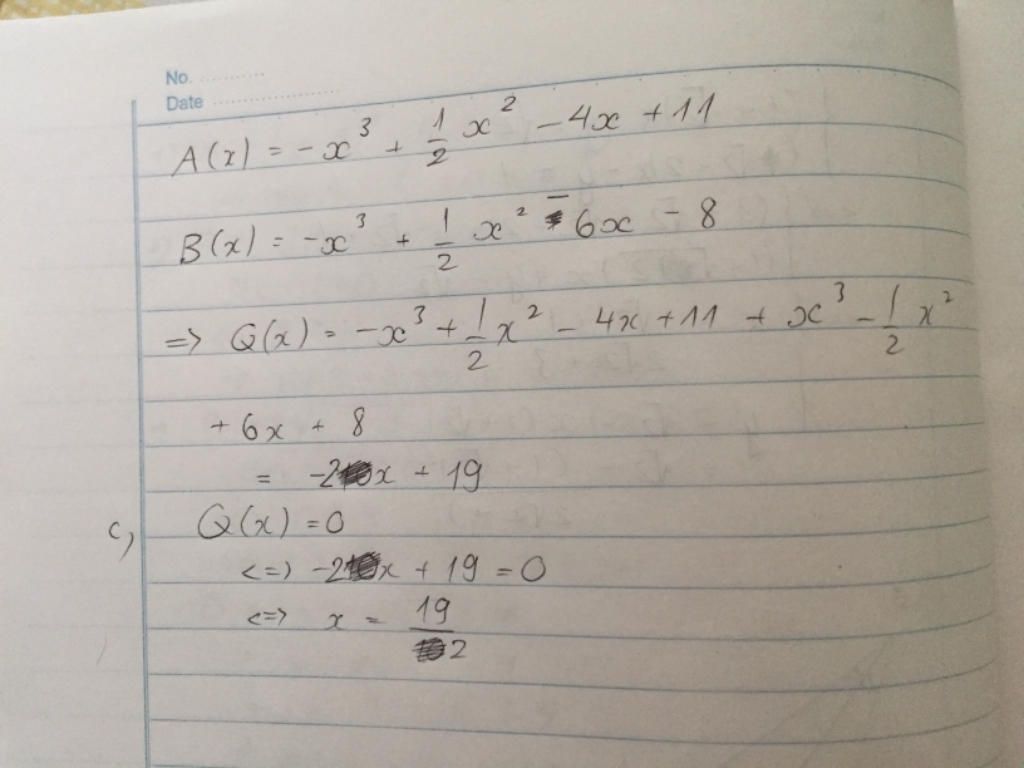 No. ............
Date ........................
A(x) = -x³ + 1/2 x² - 4x + 11
B(x) = -x³ + 1/2 x² - 6x - 8
=> Q(x) = -x³ + 1/2 x² - 4x + 11 + x³ - 1/2 x²
+ 6x + 8
= -2x + 19
c, Q(x) = 0
<=> -2x + 19 = 0
<=> x = 19/2